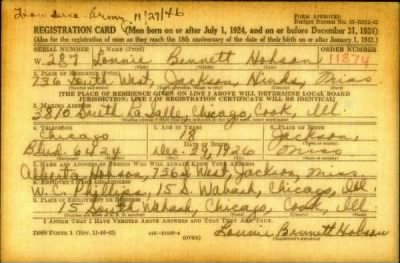 11/27/46
FORM APPROVED
REGISTRATION CARD (Men born on or after July 1, 1924, and on or before December 31, 1924)
(Also for the registration of men as they reach the 18th anniversary of the date of their birth on or after January 1, 1925.)
SERIAL NUMBER 1. NAME (Print) ORDER NUMBER
W 287 Lonnie Bennett Hobson 11874
2. PLACE OF RESIDENCE (Print)
736 South West, Jackson Hinds, Miss
[THE PLACE OF RESIDENCE GIVEN ON LINE 2 ABOVE WILL DETERMINE LOCAL BOARD
JURISDICTION; LINE 2 OF REGISTRATION CERTIFICATE WILL BE IDENTICAL]
3. MAILING ADDRESS
3810 South La Salle, Chicago, Cook, Ill.
4. TELEPHONE 5. AGE IN YEARS 6. PLACE OF BIRTH
18 Jackson,
DATE OF BIRTH
Blvd. 6424 Dec. 29, 1926 Miss
7. NAME AND ADDRESS OF PERSON WHO WILL ALWAYS KNOW YOUR ADDRESS
Alberta Hobson, 736 S. West, Jackson, Miss.
8. EMPLOYER'S NAME AND ADDRESS
W. C. Phillips, 15 S. Wabash, Chicago, Ill.
9. PLACE OF EMPLOYMENT OR BUSINESS
15 South Wabash, Chicago, Cook, Ill.
I AFFIRM THAT I HAVE VERIFIED ABOVE ANSWERS AND THAT THEY ARE TRUE.
DSS Form 1 (Rev. 11-16-42) (OVER) Lonnie Bennett Hobson